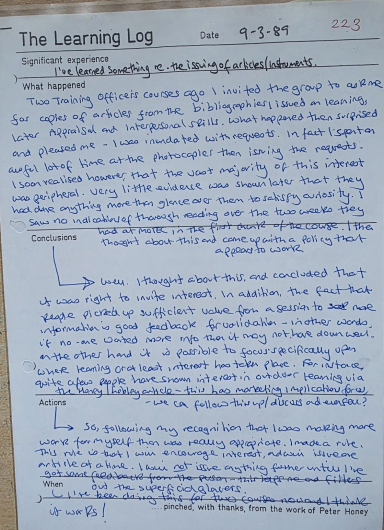 223
The Learning Log Date 9-3-89
Significant experience
I've learned something re. the issuing of articles/instruments.
What happened
Two Training Officers courses ago I invited the group to ask me
for copies of articles from the bibliographies I issued on learning,
later Appraisal and Interpersonal skills. What happened then surprised
and pleased me - I was inundated with requests. In fact I spent an
awful lot of time at the photocopier then issuing the requests.
I soon realised however that the vast majority of this interest
was peripheral. Very little evidence was shown later that they
had done anything more than glance over them to satisfy curiosity. I
saw no indication of thorough reading over the two weeks they
had at most in the first of the course. I then
thought about this and came up with a policy that
appears to work
Conclusions
Well. I thought about this, and concluded that
it was right to invite interest. In addition, the fact that
people picked up sufficient value from a session to more
information is good feedback for validation - in other words,
if no-one wanted more info then it may not have down well.
On the other hand it is possible to focus specifically upon
where learning or at least interest has taken place. For instance,
quite a few people have shown interest in outdoor learning via
the Honey / article - this has marketing implications for us,
- we can follow this up/discuss
Actions
So, following my recognition that I was making more
work for myself than was really appropriate. I made a rule.
This rule is that I will encourage interest, and will issue one
article at a time. I will not issue anything further until I've
got some feedback from the person - this helps me and filters
out the superficial glancers.
When
I've been doing this for two courses now and I think
it works!
...pinched, with thanks, from the work of Peter Honey